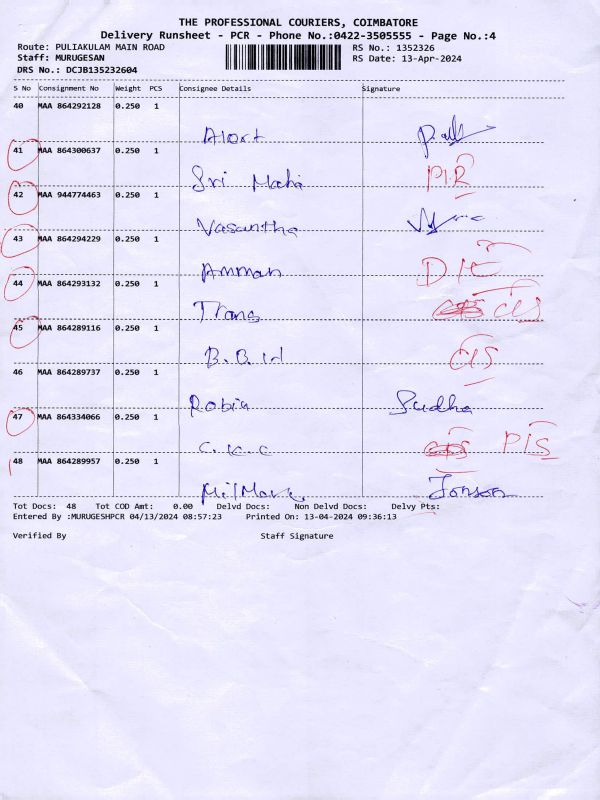 THE PROFESSIONAL COURIERS, COIMBATORE
Delivery Runsheet - PCR - Phone No.:0422-3505555 - Page No.:4
Route: PULIAKULAM MAIN ROAD RS No.: 1352326
Staff: MURUGESAN RS Date: 13-Apr-2024
DRS No.: DCJB135232604
S No Consignment No Weight PCS Consignee Details Signature
40 MAA 864292128 0.250 1
Alort
41 MAA 864300637 0.250 1
Sri Maha PIR
42 MAA 944774463 0.250 1
Vasantha
43 MAA 864294229 0.250 1
Amman
44 MAA 864293132 0.250 1
Thans
45 MAA 864289116 0.250 1
B.B.Id
46 MAA 864289737 0.250 1
Robia Sudha
47 MAA 864334066 0.250 1
C.K.C PIS
48 MAA 864289957 0.250 1
Jonson
Tot Docs: 48 Tot COD Amt: 0.00 Delvd Docs: Non Delvd Docs: Delvy Pts:
Entered By :MURUGESHPCR 04/13/2024 08:57:23 Printed On: 13-04-2024 09:36:13
Verified By Staff Signature